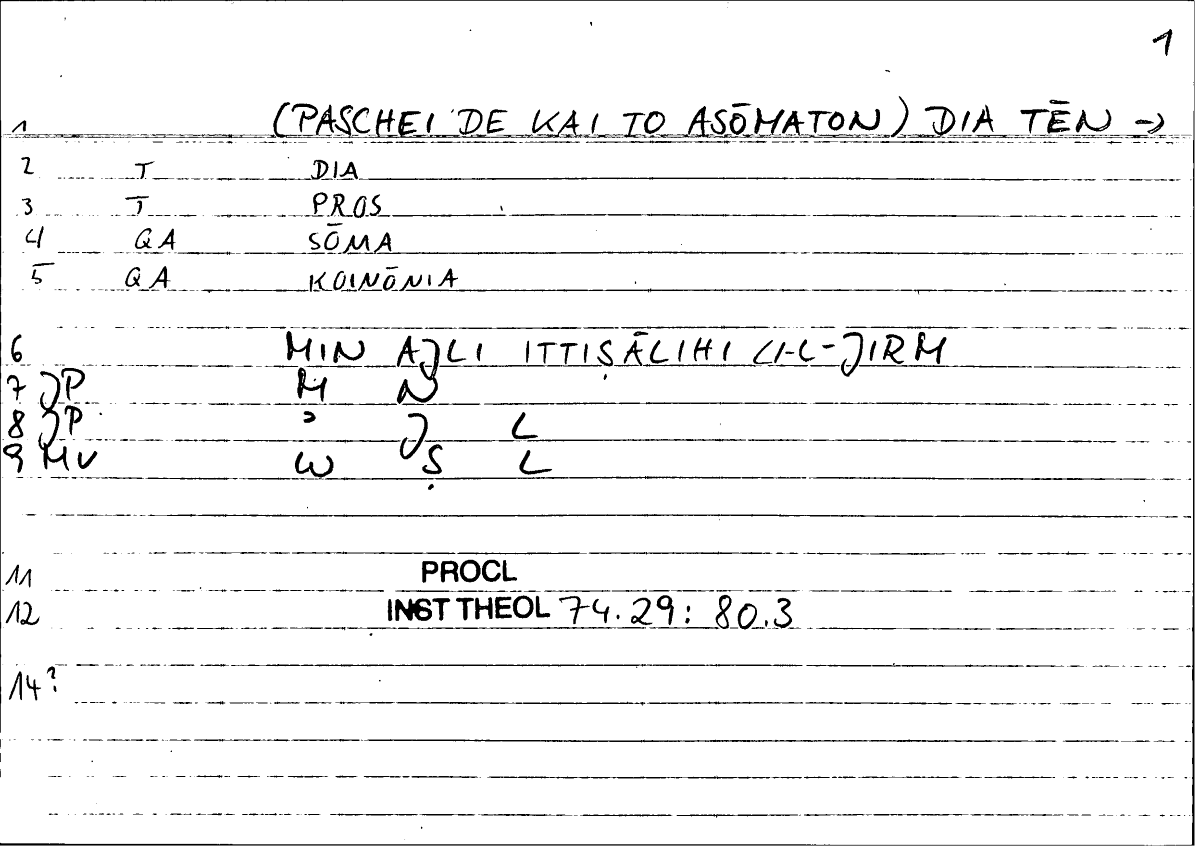 1
1 (PASCHEI DE KAI TO ASŌMATON) DIA TĒN →
2 T DIA
3 T PROS
4 QA SŌMA
5 QA KOINŌNIA
6 MIN AJLI ITTIṢĀLIHI LI-L-JIRM
7 JP M N
8 JP ʾ J L
9 MV W Ṣ L
11 PROCL
12 INST THEOL 74.29: 80.3
14?